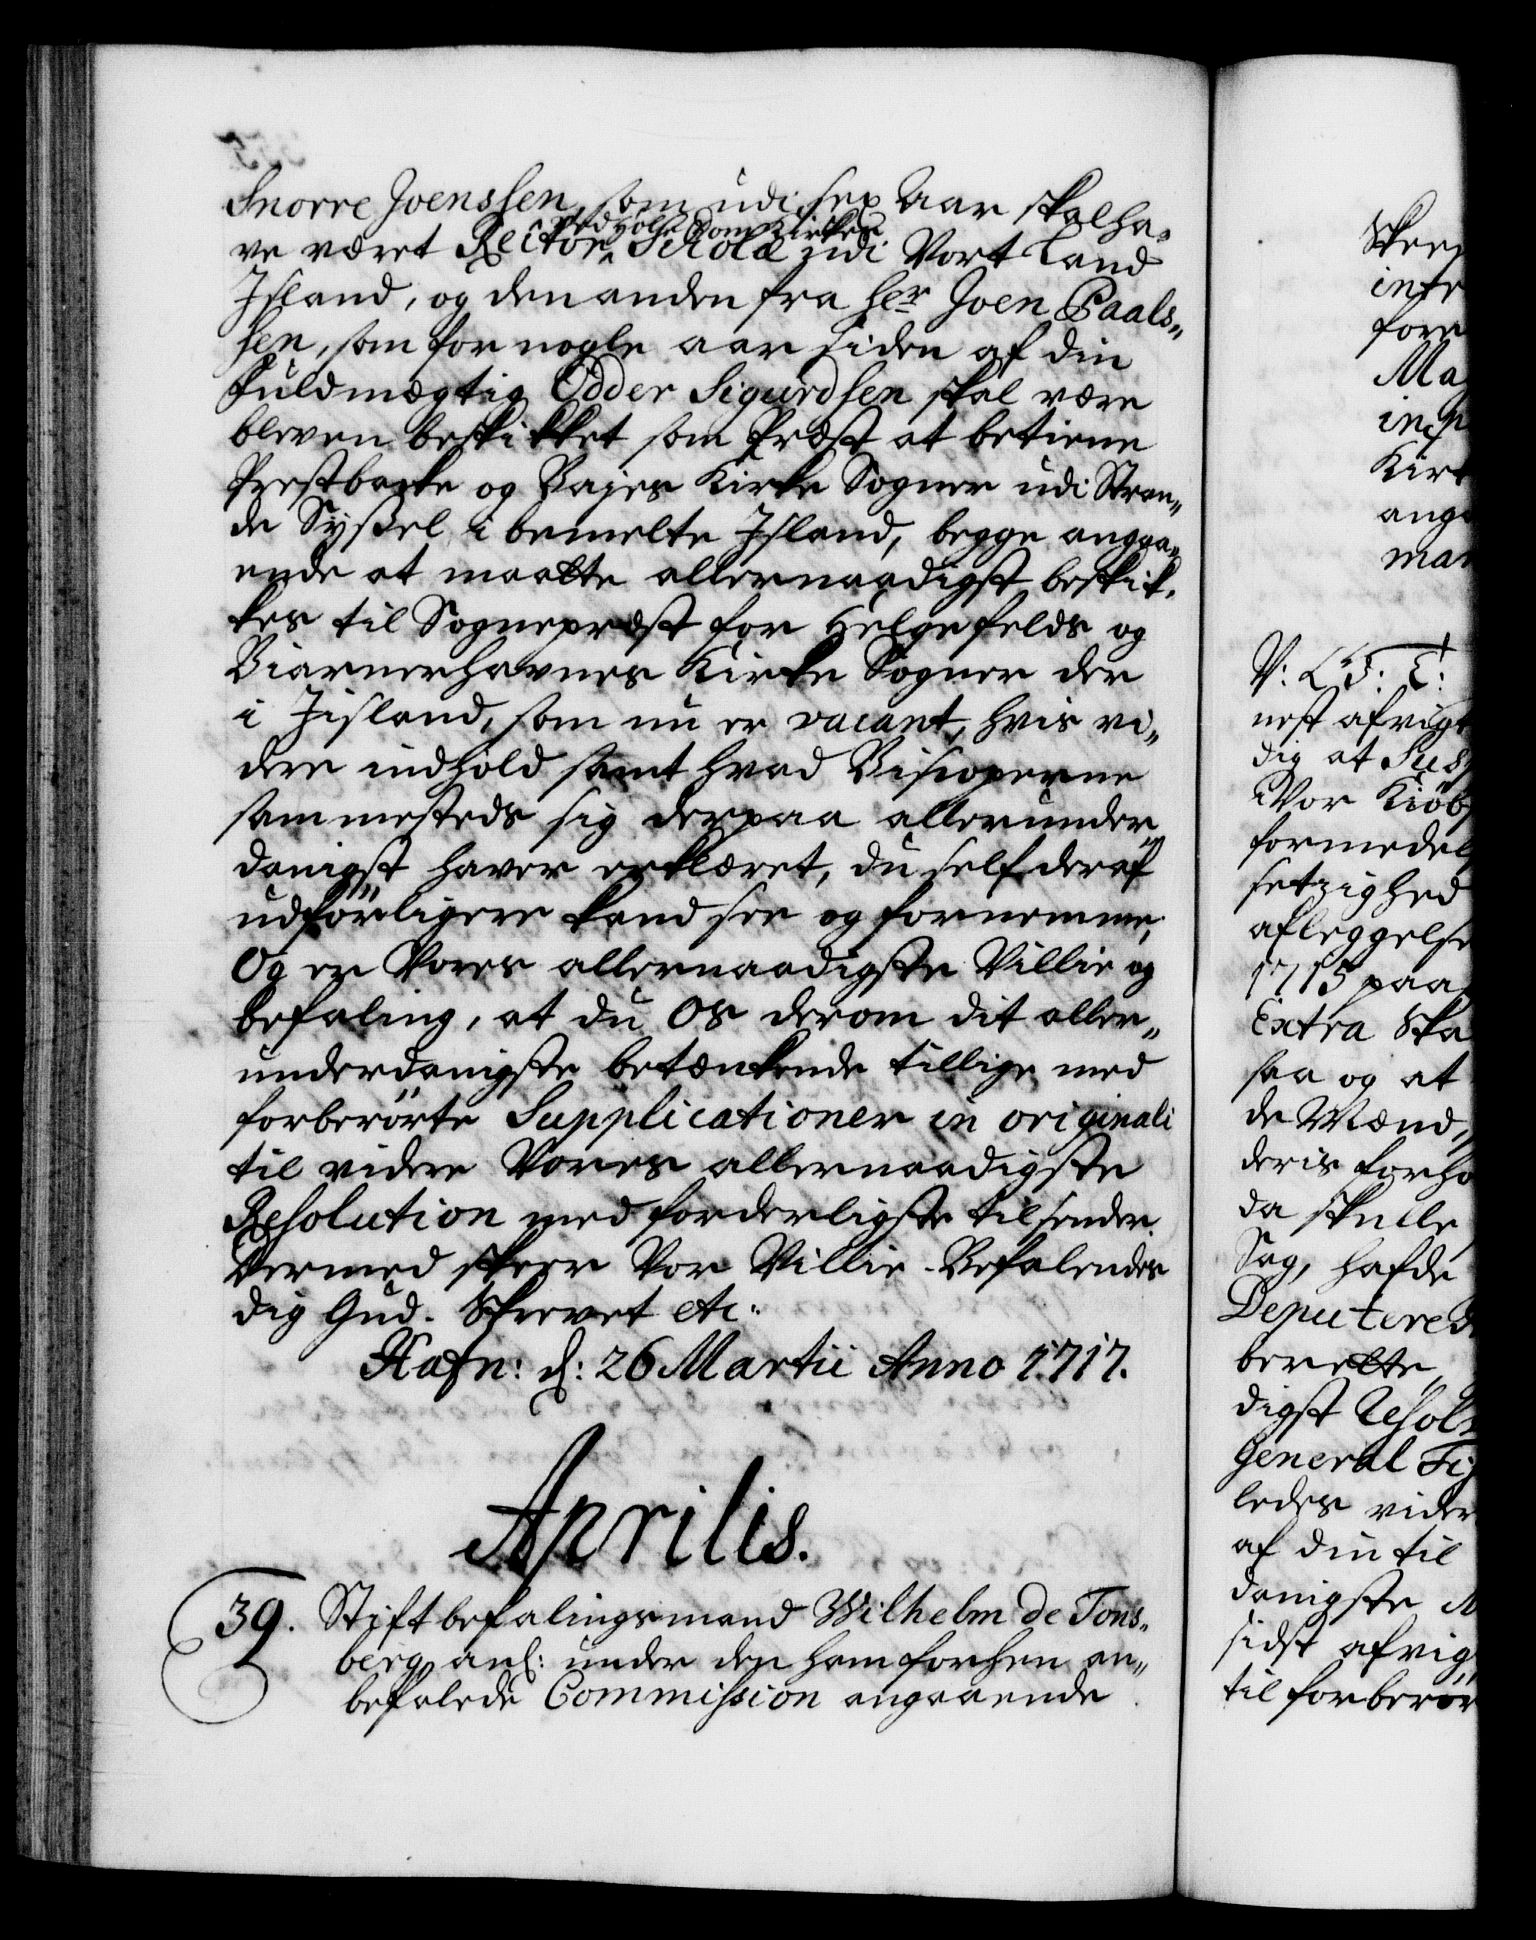 Snorre Joenssen, som udi sex Aar skal ha-
ve været Rector ved Hols Dom Kirkes Scholæ udi Vort Land
Island, og den anden fra Hr Joen Paals-
sen, som for nogle aar siden af din
fuldmægtig Odder Sigurdsen skal være
bleven beskikket som Præst at betiene
Prestbacke og Bajes Kirke Sogner udi Stran-
de Syssel i bemelte Island, begge angaa-
ende at maatte allernaadigst beskik-
kes til Sognepræst for Helgefelds og
Biarnerhavnes Kirke Sogner der
i Jisland, som nu er vacant, hvis vi-
dere indhold samt hvad Biscoperne
sammesteds sig derpaa allerunder-
danigst haver erklæret, du self deraf
udførligere kand see og fornemme,
Og er Vores allernaadigste Villie og
befaling, at du Os derom dit aller-
underdanigste betænkende tillige med
forberørte Supplicationer in originali
til videre Vores allernaadigste
Resolution med forderligste tilsender.
Dermed skeer Vor Villie. Befalendes
dig Gud. Skrevet etc:
Hafn: d: 26 Martii Anno 1717.
Aprilis.
39. Stiftbefalingsmand Wilhelm de Tons-
berg anl: under den ham forhen an-
befalede Commission angaaende
Skree
intr
fore
Ma
insp
Kirk
anga
man
V: G: T:
nest afvigt
dig at Sus
Vor Kiøb
formedel
setzighed
afleggelse
1715 paa
Extra Ska
saa og at
de Mænd,
deris forho
da skulle
Sag, hafde
Deputerede
berette
digst Resol
General Fi
ledes vider
af din til
danigste M
sidst afvig
til forberør